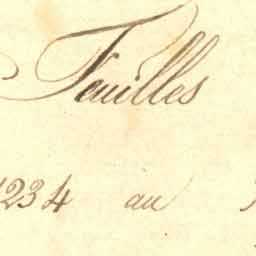 Feuilles
1234 au